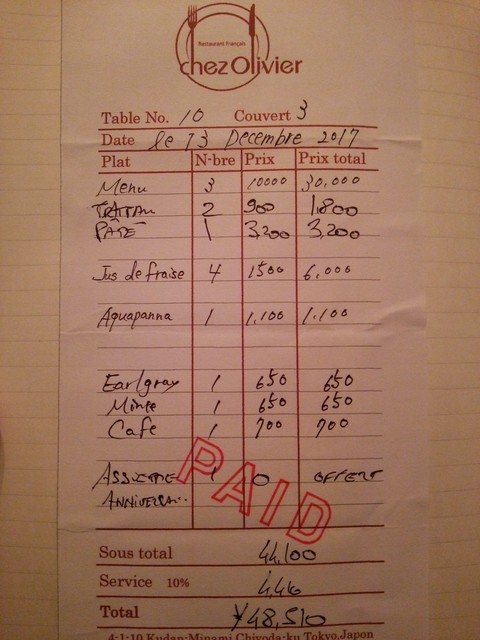 Restaurant Français
chez Olivier
Table No. 10 Couvert 3
Date le 13 Decembre 2017
Plat N-bre Prix Prix total
Menu 3 10000 30,000
2 900 1,800
PATE 1 3,200 3,200
Jus de fraise 4 1500 6,000
Aquapanna 1 1,100 1,100
Earlgray 1 650 650
Minte 1 650 650
Cafe 1 700 700
ASSIETTE 1 0 OFFERT
ANNIVERSAI..
PAID
Sous total 44,100
Service 10% 4,410
Total ¥48,510
4-1-10 Kudan-Minami Chiyoda-ku Tokyo, Japon